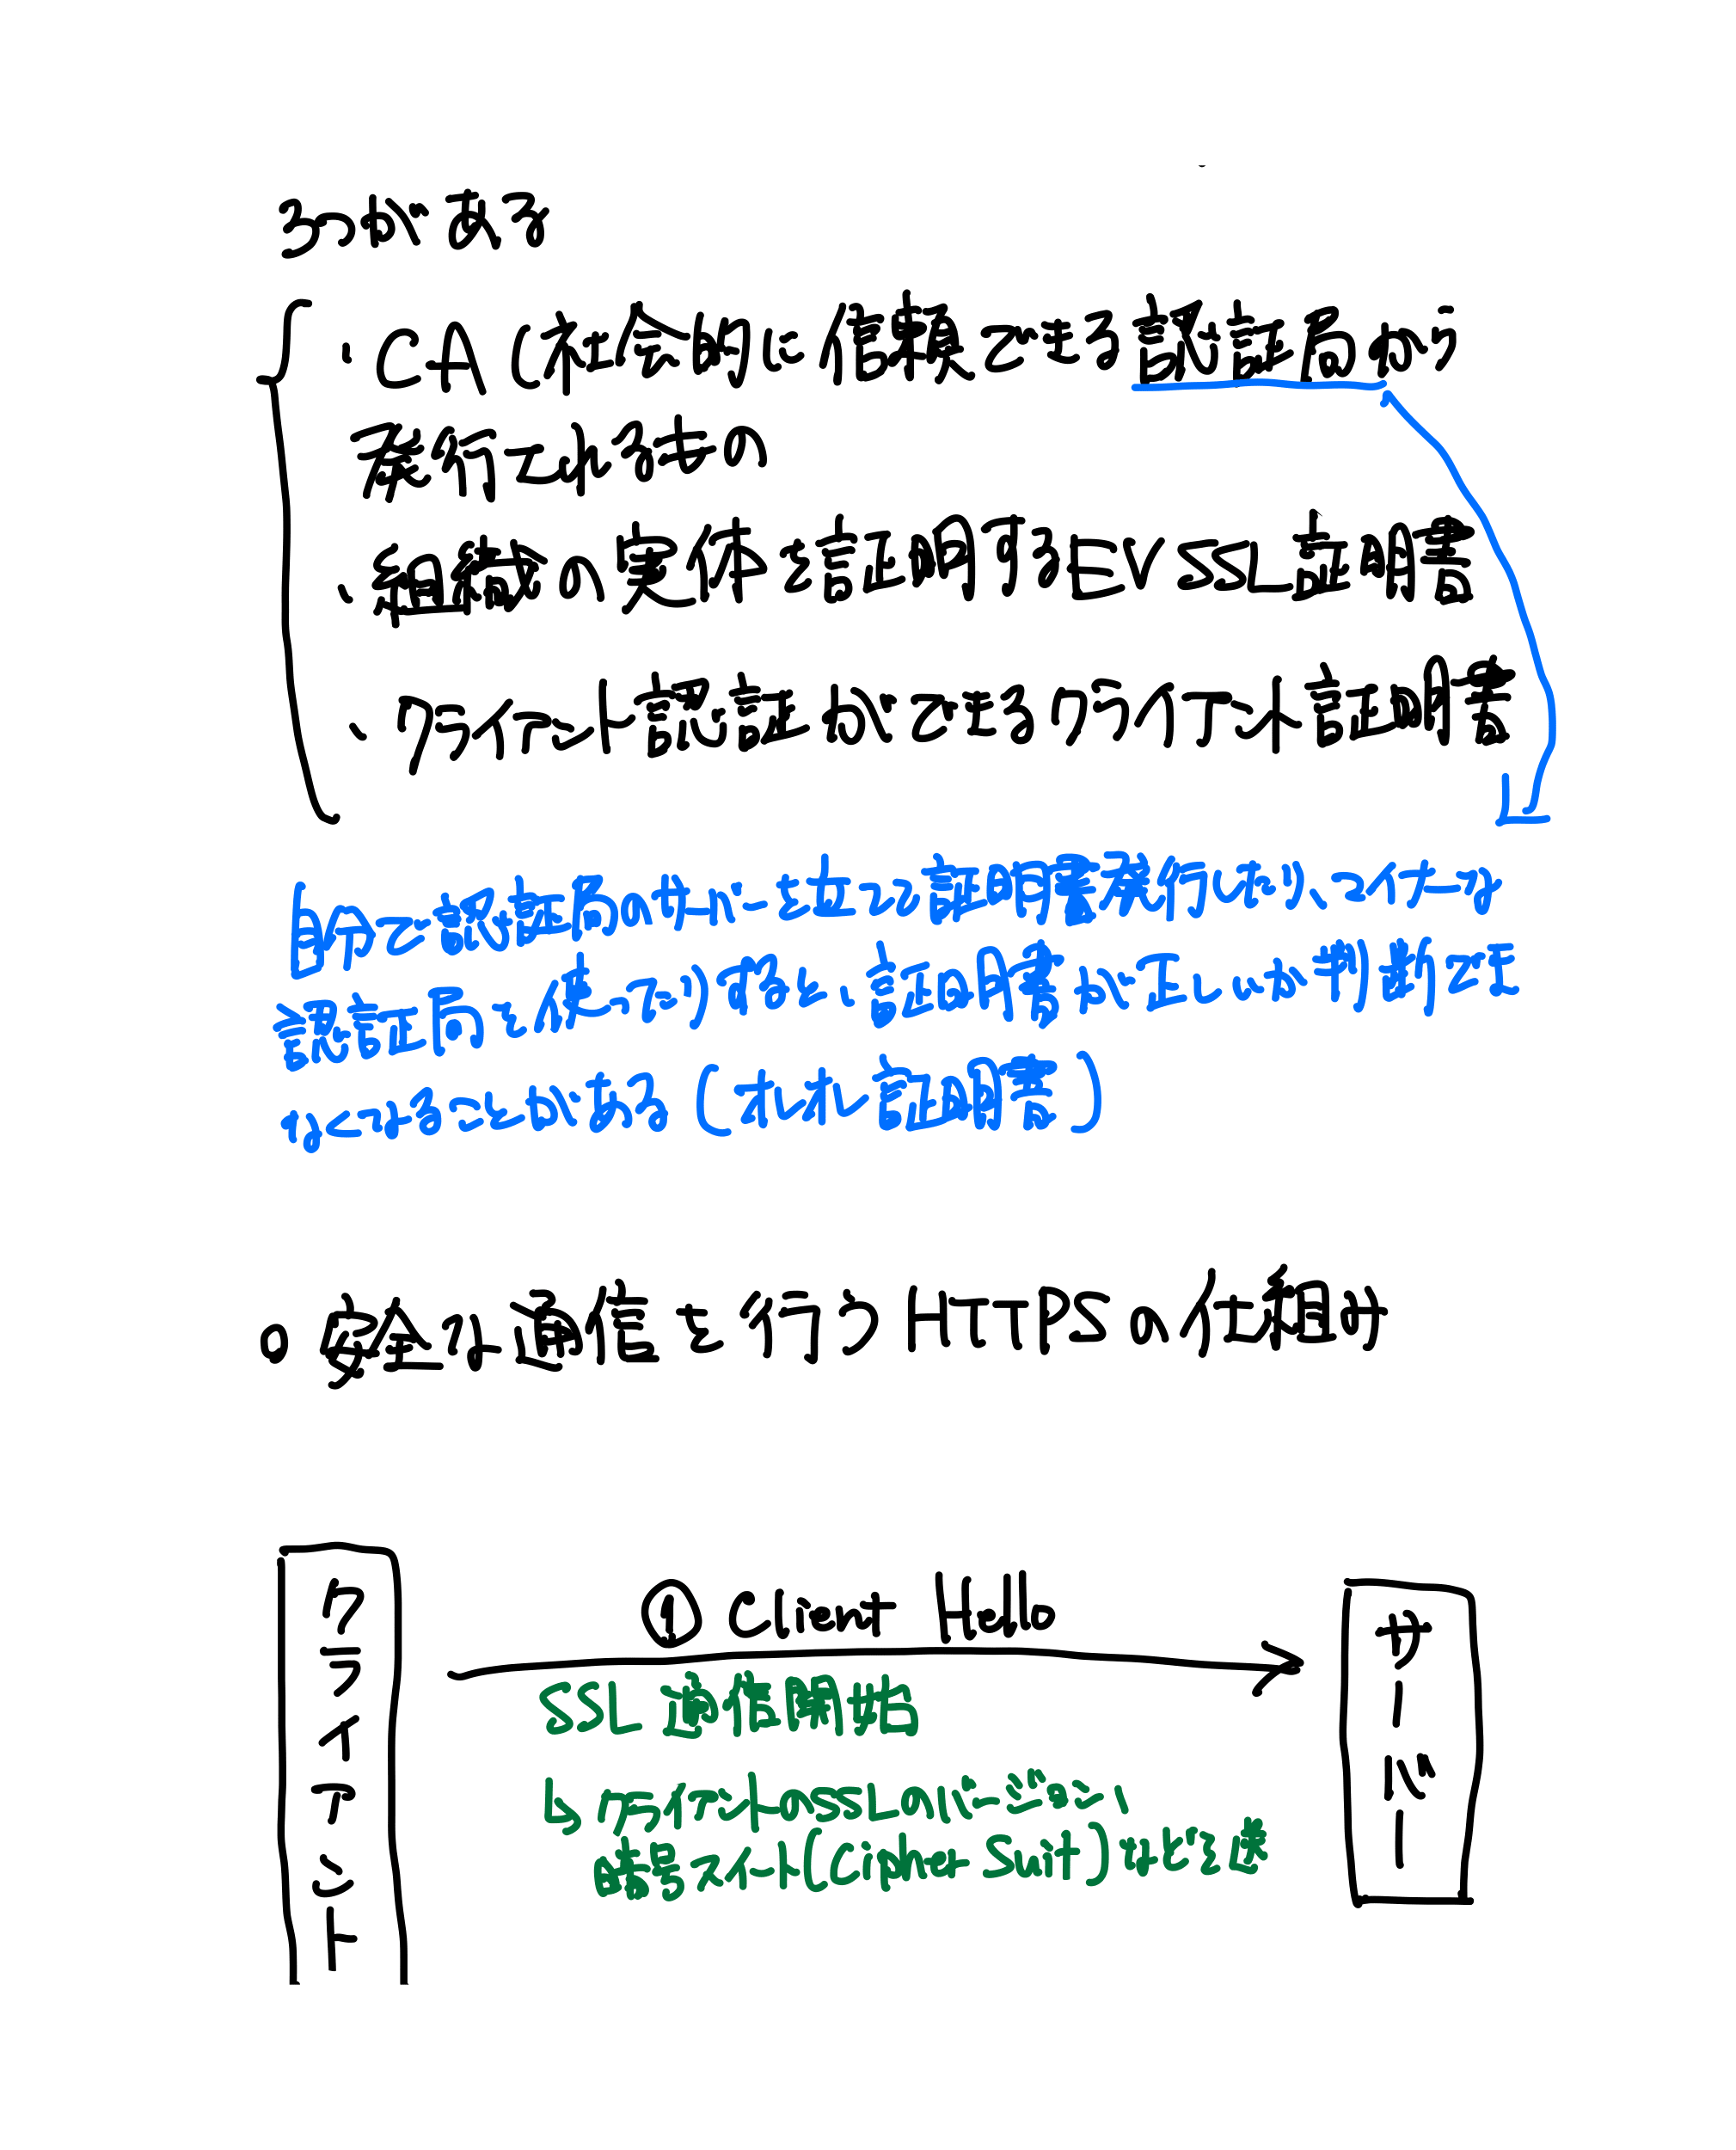 3つがある
・CA(社会的に信頼できる認証局から
発行されるもの
・組織の実体を証明するEV SSL証明書
・クライアント認証ができるクライアント証明書
自分で認証局のサーバーを立てて証明書発行したり、マイナーな
認証局を使ったりすると、証明書が正しいか判断でき
なくなることがある(オレオレ証明書)
○安全な通信を行うHTTPSの仕組み
① Client Hello
SSL 通信開始
↳クライアントのSSLのバージョン、
暗号スイート(Cipher Suit)などを送
クライアント
サーバー